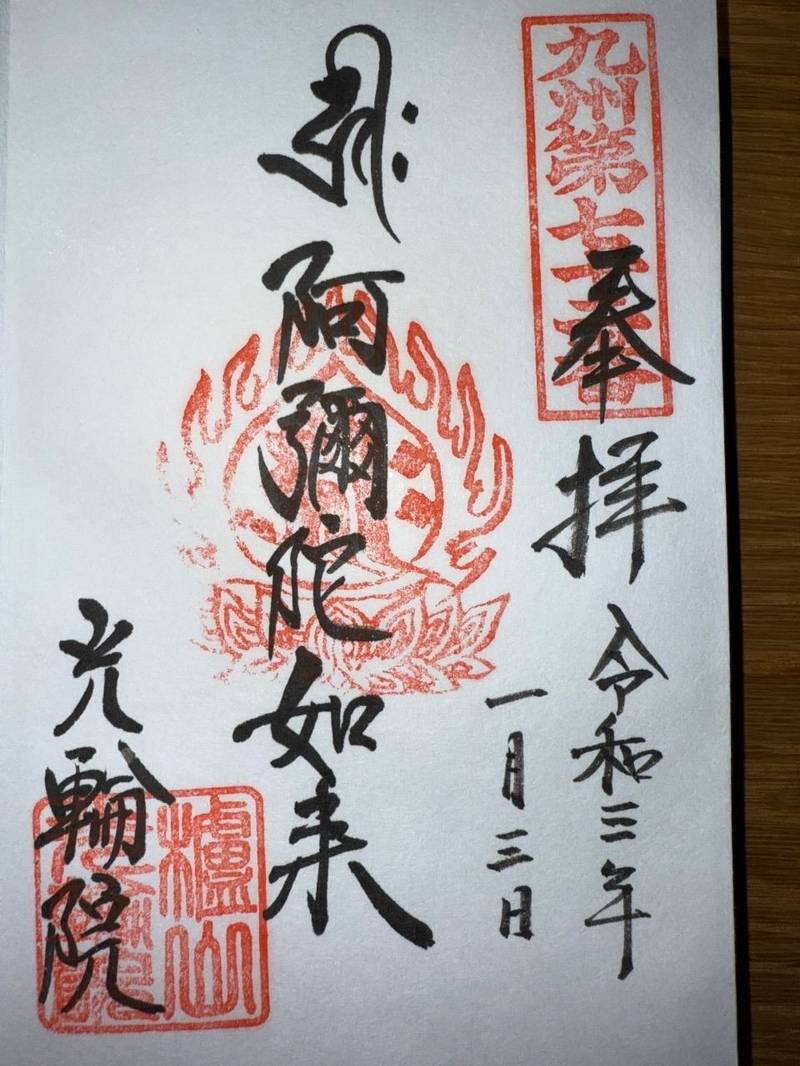 九州第七十
奉拝
令和三年
一月三日
𑖮𑖿𑖨𑖱𑖾
阿彌陀如来
光輪院
櫨山